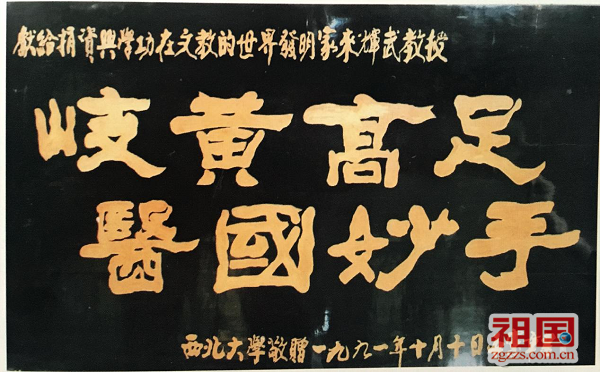 獻給捐資興學功在文教的世界發明家來輝武教授
岐黄髙足
醫國妙手
西北大學敬贈一九九一年十月十日
祖国
zgzzs.com.cn